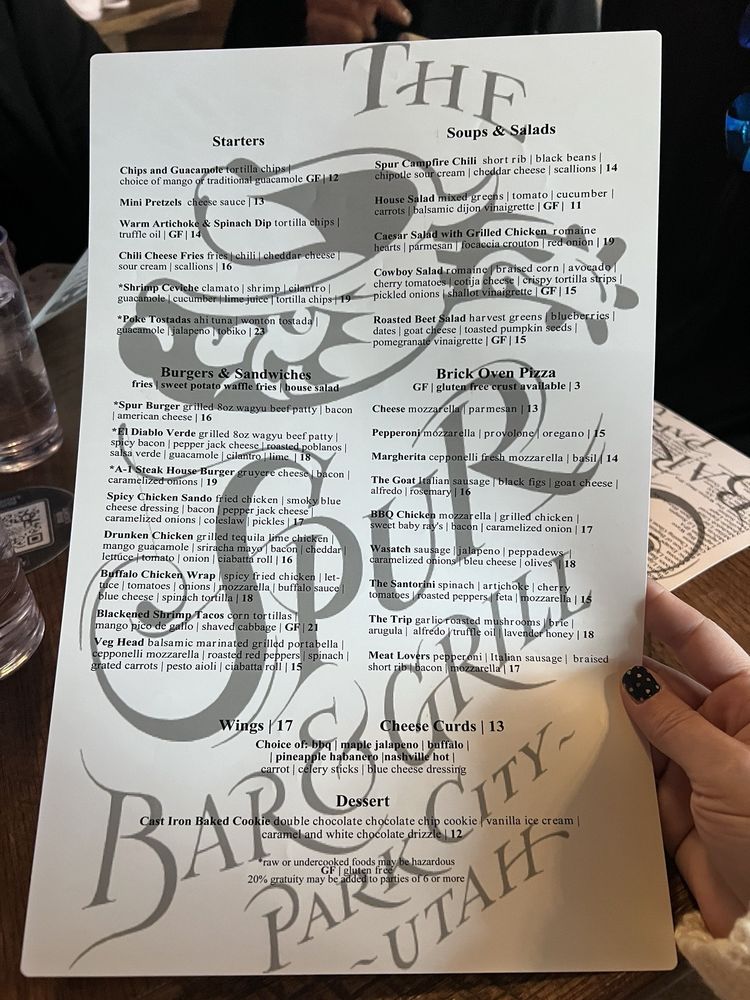 THE
SPUR
BAR & GRILL
PARK CITY
~UTAH~
Starters
Chips and Guacamole tortilla chips |
choice of mango or traditional guacamole GF | 12
Mini Pretzels cheese sauce | 13
Warm Artichoke & Spinach Dip tortilla chips |
truffle oil | GF | 14
Chili Cheese Fries fries | chili | cheddar cheese |
sour cream | scallions | 16
*Shrimp Ceviche clamato | shrimp | cilantro |
guacamole | cucumber | lime juice | tortilla chips | 19
*Poke Tostadas ahi tuna | wonton tostada |
guacamole | jalapeno | tobiko | 23
Soups & Salads
Spur Campfire Chili short rib | black beans |
chipotle sour cream | cheddar cheese | scallions | 14
House Salad mixed greens | tomato | cucumber |
carrots | balsamic dijon vinaigrette | GF | 11
Caesar Salad with Grilled Chicken romaine
hearts | parmesan | focaccia crouton | red onion | 19
Cowboy Salad romaine | braised corn | avocado |
cherry tomatoes | cotija cheese | crispy tortilla strips |
pickled onions | shallot vinaigrette | GF | 15
Roasted Beet Salad harvest greens | blueberries |
dates | goat cheese | toasted pumpkin seeds |
pomegranate vinaigrette | GF | 15
Burgers & Sandwiches
fries | sweet potato waffle fries | house salad
*Spur Burger grilled 8oz wagyu beef patty | bacon
| american cheese | 16
*El Diablo Verde grilled 8oz wagyu beef patty |
spicy bacon | pepper jack cheese | roasted poblanos |
salsa verde | guacamole | cilantro | lime | 18
*A-1 Steak House Burger gruyere cheese | bacon |
caramelized onions | 19
Spicy Chicken Sando fried chicken | smoky blue
cheese dressing | bacon | pepper jack cheese |
caramelized onions | coleslaw | pickles | 17
Drunken Chicken grilled tequila lime chicken |
mango guacamole | sriracha mayo | bacon | cheddar |
lettuce | tomato | onion | ciabatta roll | 16
Buffalo Chicken Wrap | spicy fried chicken | let-
tuce | tomatoes | onions | mozzarella | buffalo sauce |
blue cheese | spinach tortilla | 18
Blackened Shrimp Tacos corn tortillas |
mango pico de gallo | shaved cabbage | GF | 21
Veg Head balsamic marinated grilled portabella |
cepponelli mozzarella | roasted red peppers | spinach |
grated carrots | pesto aioli | ciabatta roll | 15
Brick Oven Pizza
GF | gluten free crust available | 3
Cheese mozzarella | parmesan | 13
Pepperoni mozzarella | provolone | oregano | 15
Margherita cepponelli fresh mozzarella | basil | 14
The Goat Italian sausage | black figs | goat cheese |
alfredo | rosemary | 16
BBQ Chicken mozzarella | grilled chicken |
sweet baby ray's | bacon | caramelized onion | 17
Wasatch sausage | jalapeno | peppadews |
caramelized onions | bleu cheese | olives | 18
The Santorini spinach | artichoke | cherry
tomatoes | roasted peppers | feta | mozzarella | 15
The Trip garlic roasted mushrooms | brie |
arugula | alfredo | truffle oil | lavender honey | 18
Meat Lovers pepperoni | Italian sausage | braised
short rib | bacon | mozzarella | 17
Wings | 17
Cheese Curds | 13
Choice of: bbq | maple jalapeno | buffalo |
| pineapple habanero |nashville hot |
carrot | celery sticks | blue cheese dressing
Dessert
Cast Iron Baked Cookie double chocolate chocolate chip cookie | vanilla ice cream |
caramel and white chocolate drizzle | 12
*raw or undercooked foods may be hazardous
GF | gluten free
20% gratuity may be added to parties of 6 or more